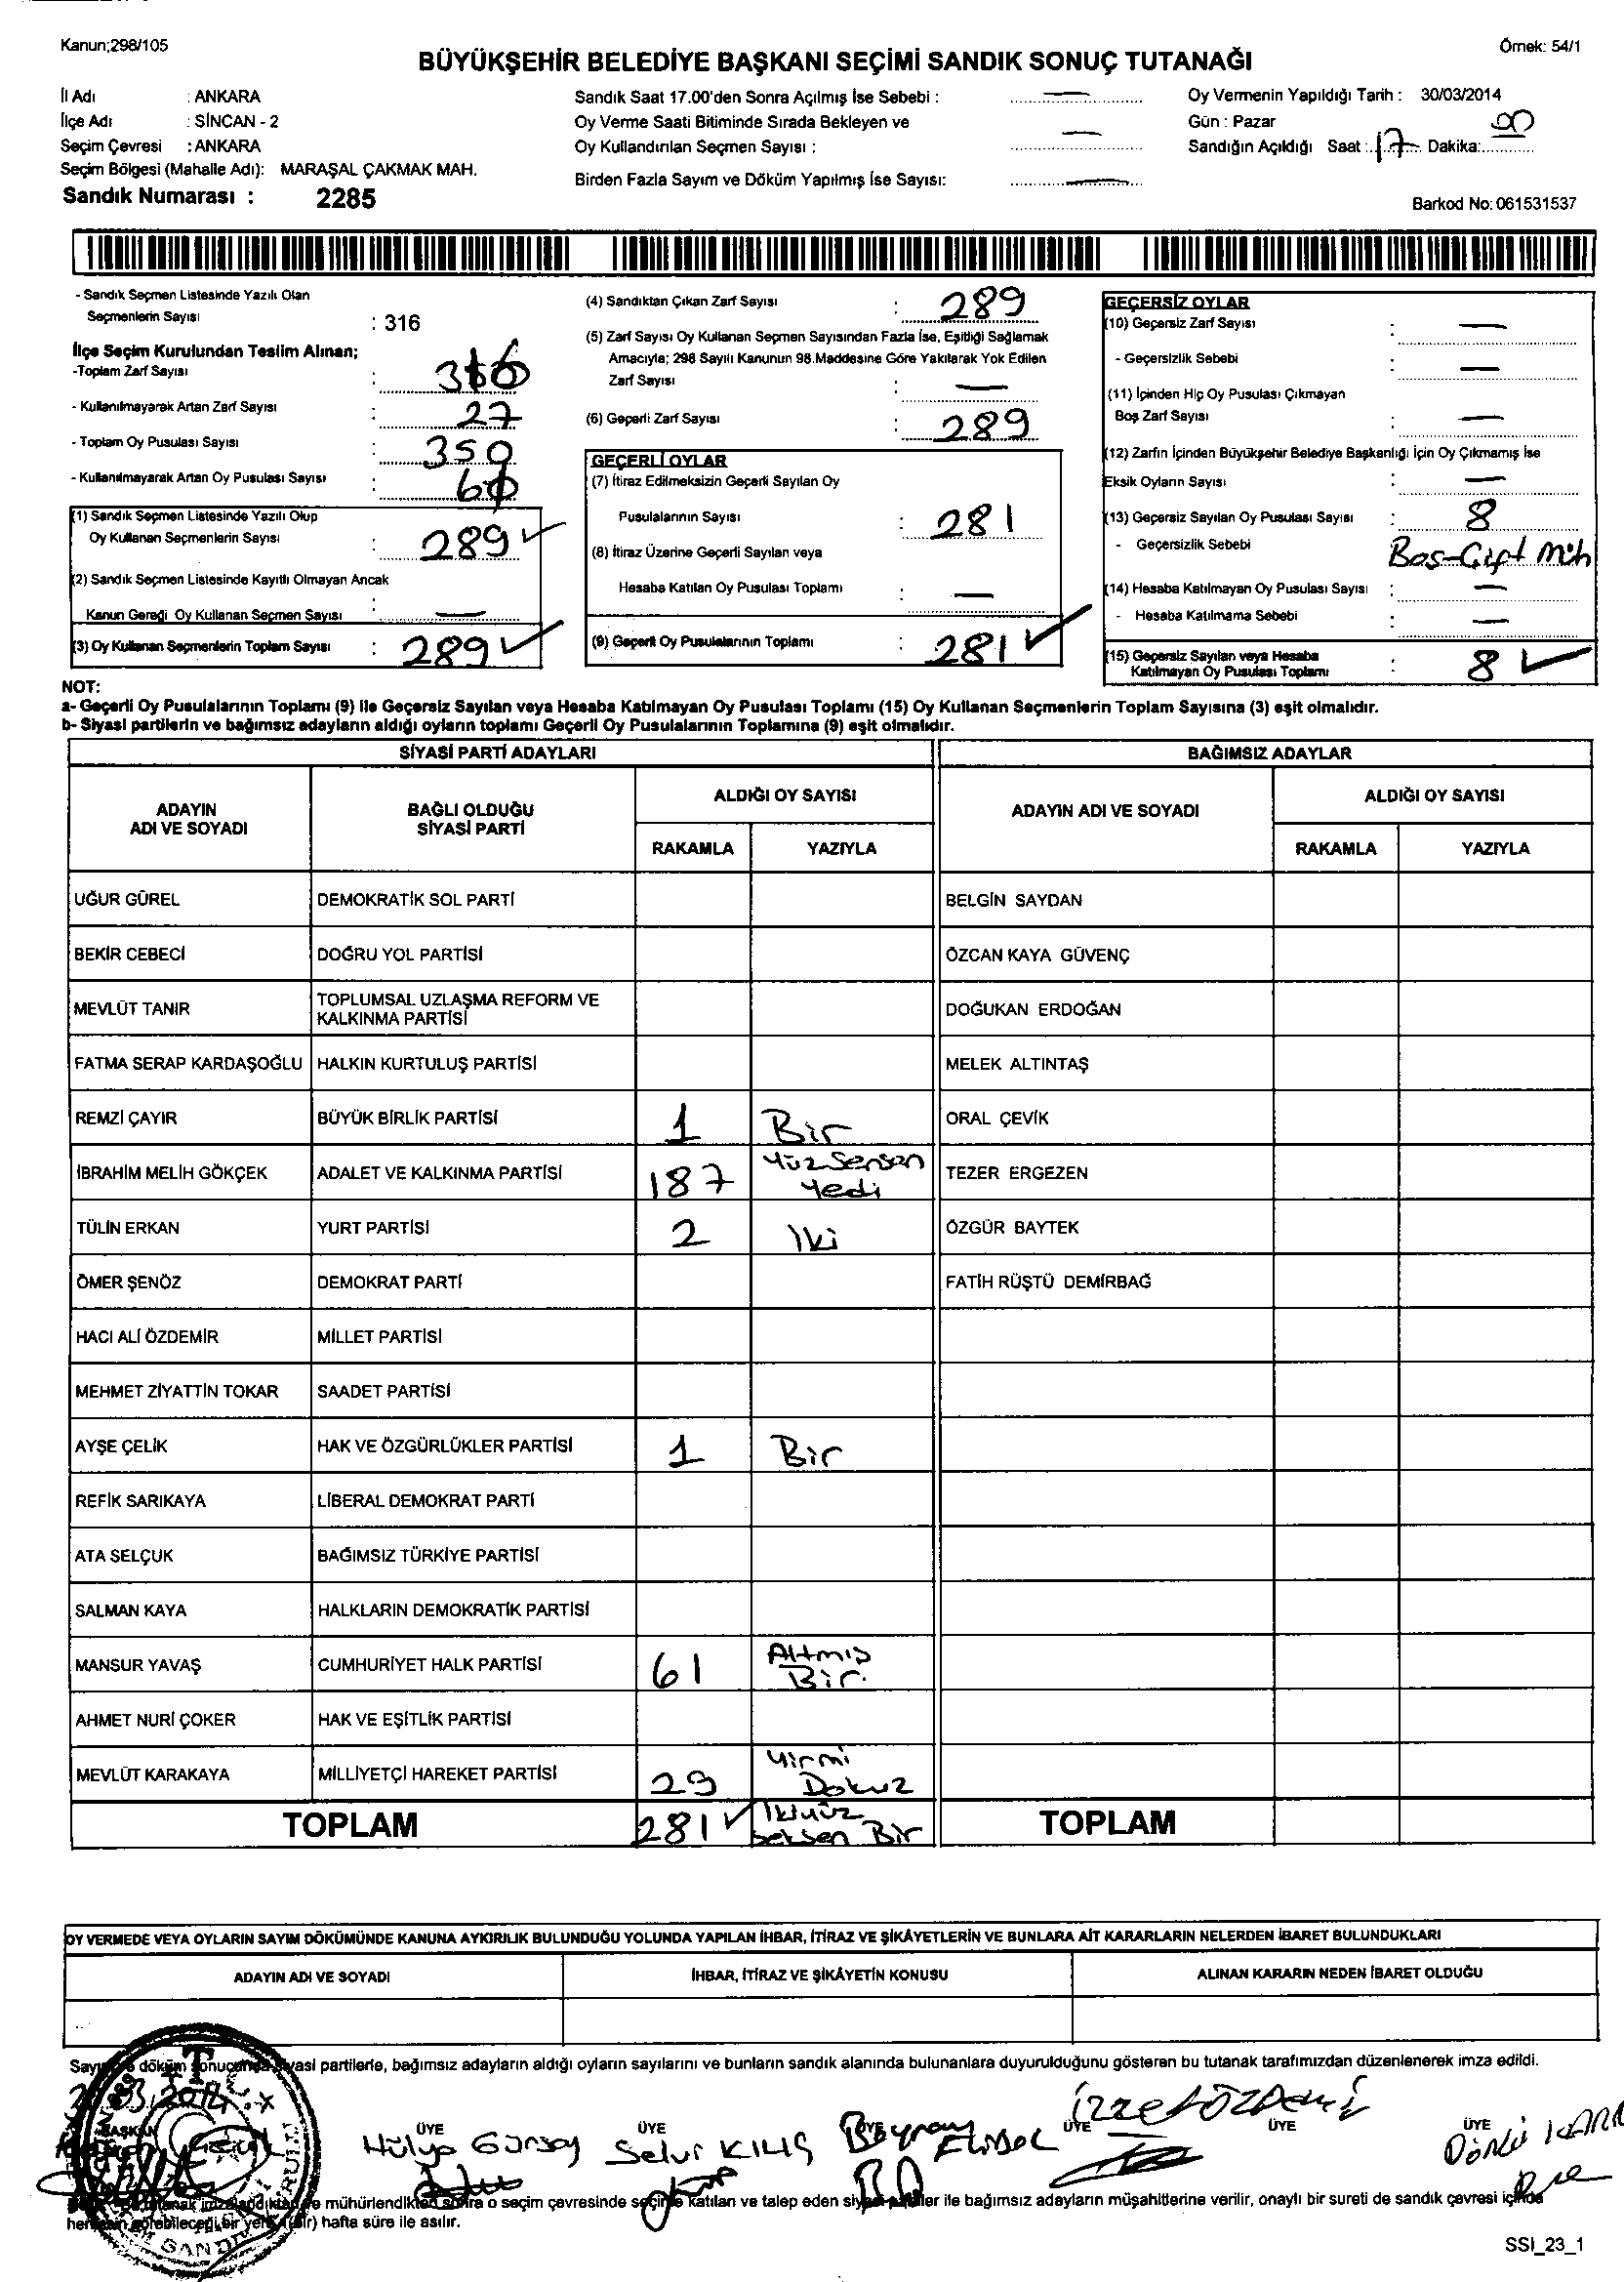 Kanun;298/105
Örnek: 54/1
BÜYÜKŞEHİR BELEDİYE BAŞKANI SEÇİMİ SANDIK SONUÇ TUTANAĞI
İl Adı : ANKARA
İlçe Adı : SİNCAN - 2
Seçim Çevresi : ANKARA
Seçim Bölgesi (Mahalle Adı): MARAŞAL ÇAKMAK MAH.
Sandık Numarası : 2285
Sandık Saat 17.00'den Sonra Açılmış İse Sebebi : —
Oy Verme Saati Bitiminde Sırada Bekleyen ve
Oy Kullandırılan Seçmen Sayısı : —
Birden Fazla Sayım ve Döküm Yapılmış İse Sayısı: —
Oy Vermenin Yapıldığı Tarih : 30/03/2014
Gün : Pazar
Sandığın Açıldığı Saat : 17 Dakika: 00
Barkod No: 061531537
- Sandık Seçmen Listesinde Yazılı Olan
Seçmenlerin Sayısı : 316
İlçe Seçim Kurulundan Teslim Alınan;
-Toplam Zarf Sayısı : 316
- Kullanılmayarak Artan Zarf Sayısı : 27
- Toplam Oy Pusulası Sayısı : 350
- Kullanılmayarak Artan Oy Pusulası Sayısı :
(1) Sandık Seçmen Listesinde Yazılı Olup
Oy Kullanan Seçmenlerin Sayısı : 289
(2) Sandık Seçmen Listesinde Kayıtlı Olmayan Ancak
Kanun Gereği Oy Kullanan Seçmen Sayısı : —
(3) Oy Kullanan Seçmenlerin Toplam Sayısı : 289
(4) Sandıktan Çıkan Zarf Sayısı : 289
(5) Zarf Sayısı Oy Kullanan Seçmen Sayısından Fazla İse, Eşitliği Sağlamak
Amacıyla; 298 Sayılı Kanunun 98.Maddesine Göre Yakılarak Yok Edilen
Zarf Sayısı : —
(6) Geçerli Zarf Sayısı : 289
GEÇERLİ OYLAR
(7) İtiraz Edilmeksizin Geçerli Sayılan Oy
Pusulalarının Sayısı : 281
(8) İtiraz Üzerine Geçerli Sayılan veya
Hesaba Katılan Oy Pusulası Toplamı : —
(9) Geçerli Oy Pusulalarının Toplamı : 281
GEÇERSİZ OYLAR
(10) Geçersiz Zarf Sayısı : —
- Geçersizlik Sebebi : —
(11) İçinden Hiç Oy Pusulası Çıkmayan
Boş Zarf Sayısı : —
(12) Zarfın İçinden Büyükşehir Belediye Başkanlığı İçin Oy Çıkmamış İse
Eksik Oyların Sayısı : —
(13) Geçersiz Sayılan Oy Pusulası Sayısı : 8
- Geçersizlik Sebebi Boş-Çift Müh
(14) Hesaba Katılmayan Oy Pusulası Sayısı : —
- Hesaba Katılmama Sebebi : —
(15) Geçersiz Sayılan veya Hesaba
Katılmayan Oy Pusulası Toplamı : 8
NOT:
a- Geçerli Oy Pusulalarının Toplamı (9) ile Geçersiz Sayılan veya Hesaba Katılmayan Oy Pusulası Toplamı (15) Oy Kullanan Seçmenlerin Toplam Sayısına (3) eşit olmalıdır.
b- Siyasi partilerin ve bağımsız adayların aldığı oyların toplamı Geçerli Oy Pusulalarının Toplamına (9) eşit olmalıdır.
SİYASİ PARTİ ADAYLARI
BAĞIMSIZ ADAYLAR
ADAYIN
ADI VE SOYADI
BAĞLI OLDUĞU
SİYASİ PARTİ
ALDIĞI OY SAYISI
RAKAMLA YAZIYLA
ADAYIN ADI VE SOYADI
ALDIĞI OY SAYISI
RAKAMLA YAZIYLA
UĞUR GÜREL DEMOKRATİK SOL PARTİ BELGİN SAYDAN
BEKİR CEBECİ DOĞRU YOL PARTİSİ ÖZCAN KAYA GÜVENÇ
MEVLÜT TANIR TOPLUMSAL UZLAŞMA REFORM VE
KALKINMA PARTİSİ DOĞUKAN ERDOĞAN
FATMA SERAP KARDAŞOĞLU HALKIN KURTULUŞ PARTİSİ MELEK ALTINTAŞ
REMZİ ÇAYIR BÜYÜK BİRLİK PARTİSİ 1 Bir ORAL ÇEVİK
İBRAHİM MELİH GÖKÇEK ADALET VE KALKINMA PARTİSİ 187 Yüz Sensen
Yedi TEZER ERGEZEN
TÜLİN ERKAN YURT PARTİSİ 2 İki ÖZGÜR BAYTEK
ÖMER ŞENÖZ DEMOKRAT PARTİ FATİH RÜŞTÜ DEMİRBAĞ
HACI ALİ ÖZDEMİR MİLLET PARTİSİ
MEHMET ZİYATTİN TOKAR SAADET PARTİSİ
AYŞE ÇELİK HAK VE ÖZGÜRLÜKLER PARTİSİ 1 Bir
REFİK SARIKAYA LİBERAL DEMOKRAT PARTİ
ATA SELÇUK BAĞIMSIZ TÜRKİYE PARTİSİ
SALMAN KAYA HALKLARIN DEMOKRATİK PARTİSİ
MANSUR YAVAŞ CUMHURİYET HALK PARTİSİ 61 Altmış
Bir.
AHMET NURİ ÇOKER HAK VE EŞİTLİK PARTİSİ
MEVLÜT KARAKAYA MİLLİYETÇİ HAREKET PARTİSİ 29 Yirmi
Dokuz
TOPLAM 281 İkiyüz
Seksen Bir TOPLAM
OY VERMEDE VEYA OYLARIN SAYIM DÖKÜMÜNDE KANUNA AYKIRILIK BULUNDUĞU YOLUNDA YAPILAN İHBAR, İTİRAZ VE ŞİKÂYETLERİN VE BUNLARA AİT KARARLARIN NELERDEN İBARET BULUNDUKLARI
ADAYIN ADI VE SOYADI İHBAR, İTİRAZ VE ŞİKÂYETİN KONUSU ALINAN KARARIN NEDEN İBARET OLDUĞU
döküm sonucunda siyasi partilerle, bağımsız adayların aldığı oyların sayılarını ve bunların sandık alanında bulunanlara duyurulduğunu gösteren bu tutanak tarafımızdan düzenlenerek imza edildi.
BAŞKAN ÜYE ÜYE ÜYE ÜYE ÜYE ÜYE
Hülya Gürsoy Selur KILIÇ Bayram İzzet ÖZDEMİR
tutanak imzalandıktan ve mühürlendikten sonra o seçim çevresinde seçime katılan ve talep eden siyasi partiler ile bağımsız adayların müşahitlerine verilir, onaylı bir sureti de sandık çevresi içinde
herkesin görebileceği bir yere (bir) hafta süre ile asılır.
SSI_23_1